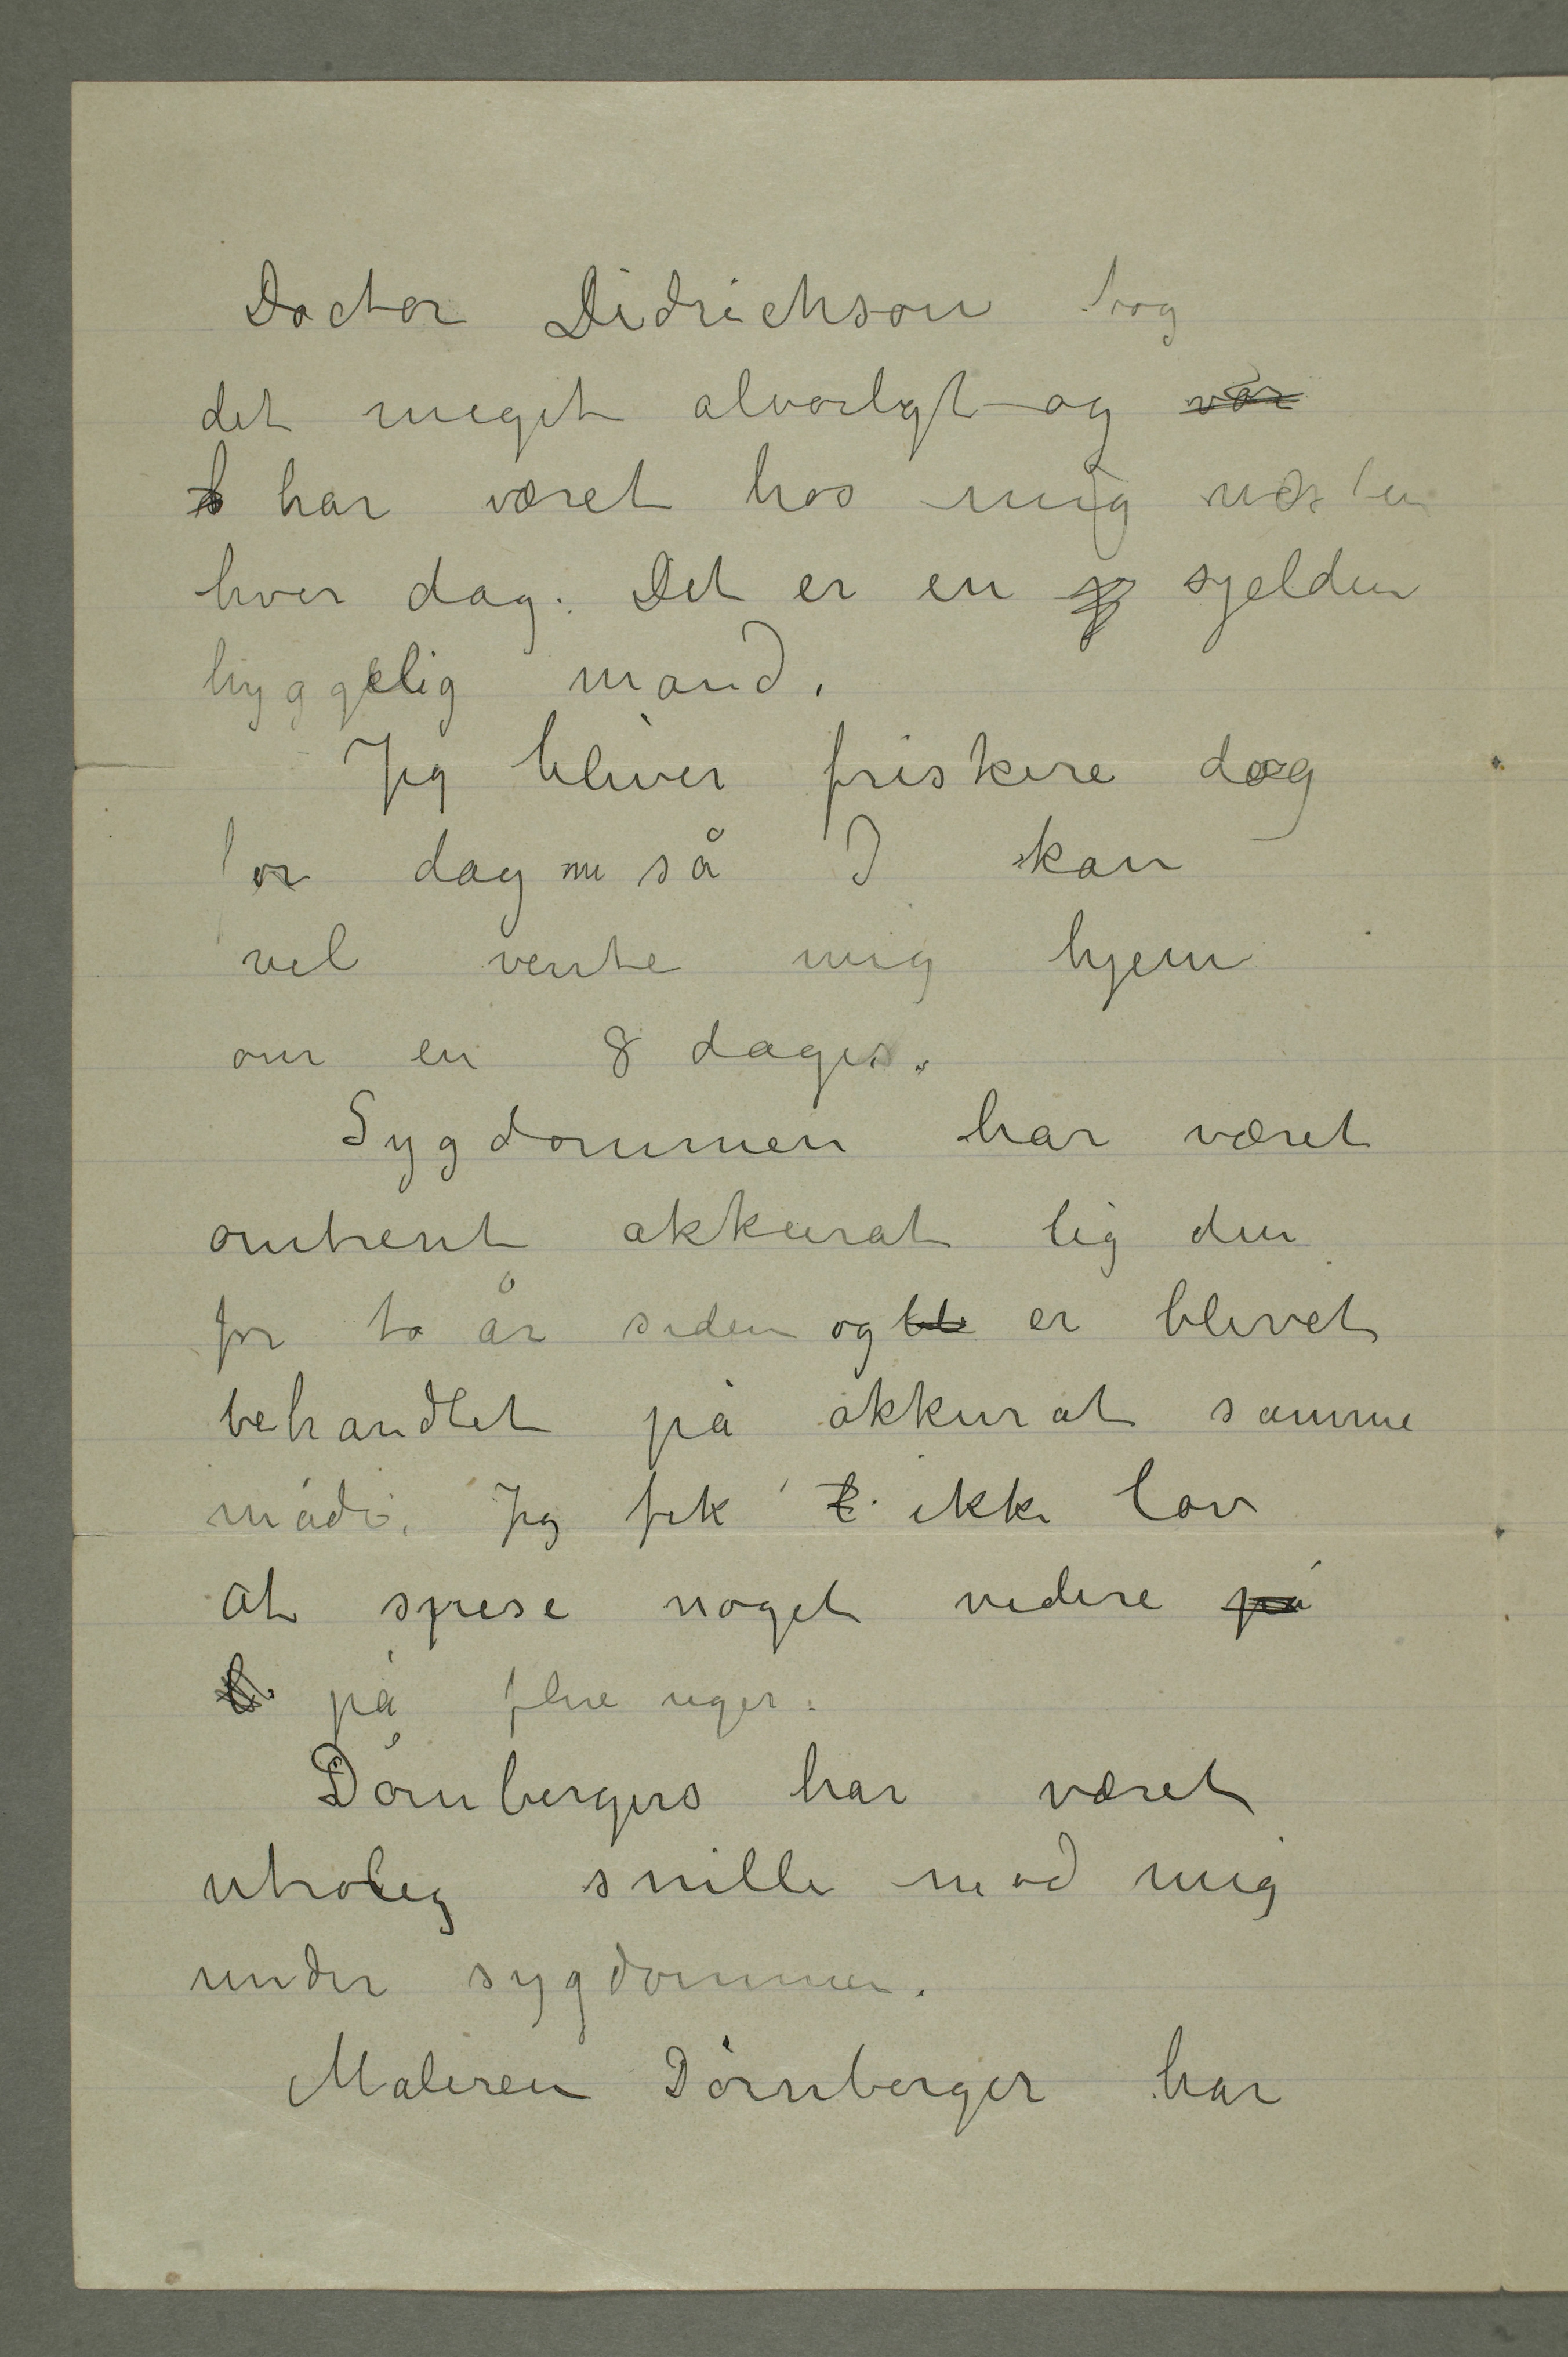 Doctor Didrichson tog
det meget alvorligt og var
har været hos mig næsten
hver dag. Det er en sjelden
hyggelig mand.
Jeg bliver friskere dag
for dag nu så I kan
vel vente mig hjem
om en 8 dages.
Sygdommen har været
omtrent akkurat lig den
for to år siden og ble er blevet
behandlet på akkurat samme
måde. Jeg fik ikke lov
at spise noget videre på
på flere uger.
Dørnbergers har været
utrolig snille mod mig
under sygdommen.
Maleren Dørnberger har